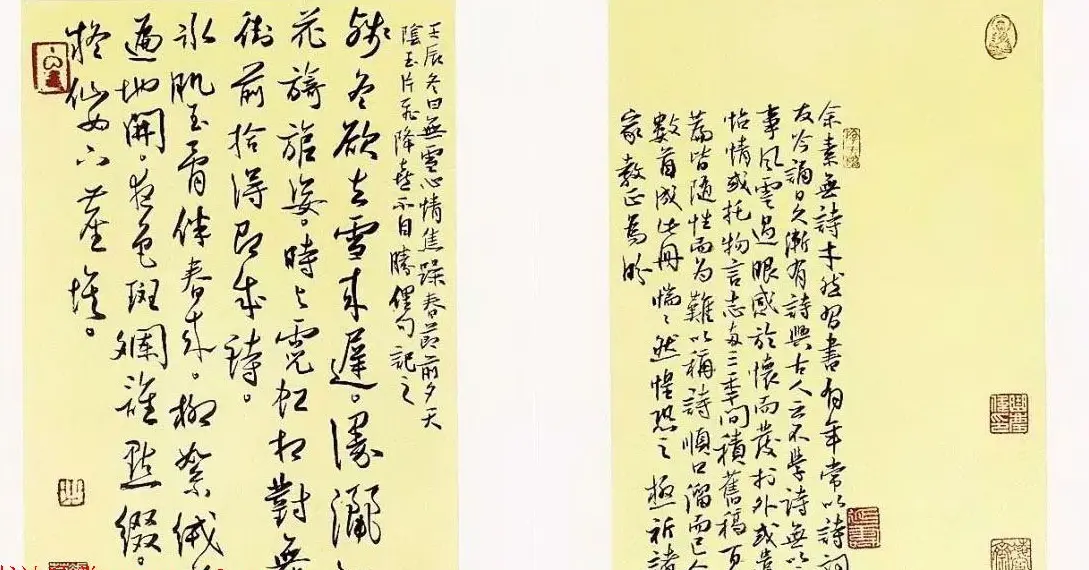 余素無詩才然習書有年常以詩詞
友吟誦日久漸有詩興古人云不學詩無以
事風雲過眼感於懷而發於外或
怡情或托物言志每三季間積舊稿百
篇皆隨性而為難以稱詩順口溜而已
數首成此冊惴惴然惶恐之極祈諸
家教正為盼
壬辰冬日無雪心情焦躁春節前夕天
陰玉片飛降喜不自勝俚句記之
殘冬欲去雪來遲。漫灑
花旖旎姿。時與霓虹相對無
街前拾得即成詩。
冰肌玉骨伴春來。柳絮絨
遍地開。夜色斑斕誰點綴。
仙女下塵埃。